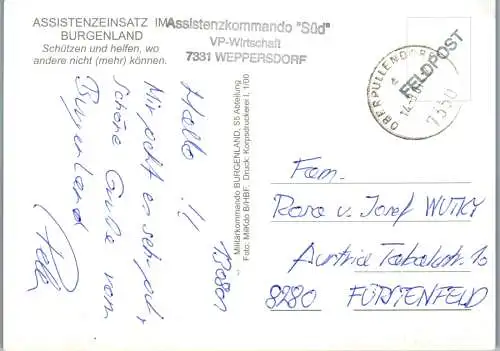 ASSISTENZEINSATZ IM
BURGENLAND
Schützen und helfen, wo
andere nicht (mehr) können.
Assistenzkommando "Süd"
VP-Wirtschaft
7331 WEPPERSDORF
FELDPOST
OBERPULLENDORF
7350
Hallo !!
Mir geht es sehr gut,
schöne Grüße vom
Burgenland
Militärkommando BURGENLAND, S5 Abteilung
Foto: MilKdo B/HBF, Druck: Korpsdruckerei I, 1/00
Fam.
Rosa u. Josef WUTKY
Austria Tabakstr. 10
8280 FÜRSTENFELD